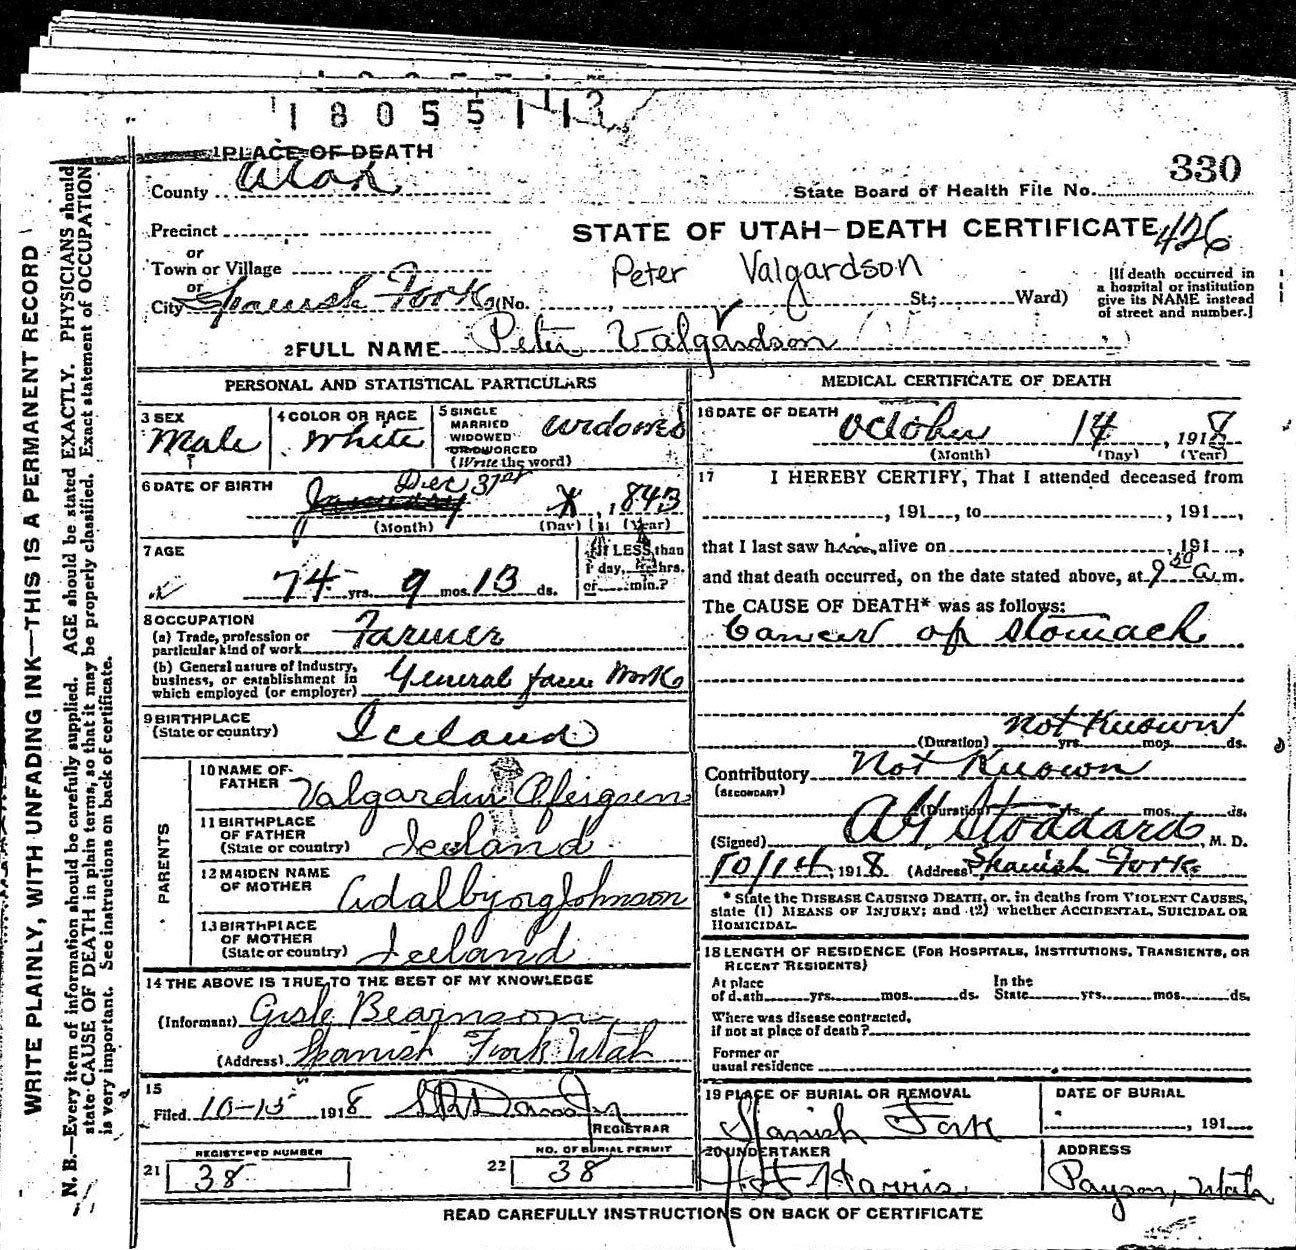 1805511
1 PLACE OF DEATH
330
County Utah
State Board of Health File No.
Precinct
STATE OF UTAH—DEATH CERTIFICATE 426
or
Town or Village
Peter Valgardson
or
City Spanish Fork (No. St.; Ward)
[If death occurred in
a hospital or institution
give its NAME instead
of street and number.]
2 FULL NAME Peter Valgardson
PERSONAL AND STATISTICAL PARTICULARS
3 SEX
Male
4 COLOR OR RACE
White
5 SINGLE
MARRIED
WIDOWED
OR DIVORCED
(Write the word)
Widowed
6 DATE OF BIRTH
Dec 31st
January 1, 1843
(Month) (Day) (Year)
7 AGE
74 yrs. 9 mos. 13 ds.
If LESS than
1 day, hrs.
or min.?
8 OCCUPATION
(a) Trade, profession or
particular kind of work Farmer
(b) General nature of industry,
business, or establishment in
which employed (or employer) General farm Work
9 BIRTHPLACE
(State or country) Iceland
PARENTS
10 NAME OF
FATHER Valgardur
11 BIRTHPLACE
OF FATHER
(State or country) Iceland
12 MAIDEN NAME
OF MOTHER Adalbjorg Johnson
13 BIRTHPLACE
OF MOTHER
(State or country) Iceland
14 THE ABOVE IS TRUE TO THE BEST OF MY KNOWLEDGE
(Informant) Gisle Bearnson
(Address) Spanish Fork Utah
15
Filed 10-15 1918
REGISTRAR
21
REGISTERED NUMBER
38
22
NO. OF BURIAL PERMIT
38
MEDICAL CERTIFICATE OF DEATH
16 DATE OF DEATH
October 14, 1918
(Month) (Day) (Year)
17 I HEREBY CERTIFY, That I attended deceased from
, 191 , to , 191 ,
that I last saw him alive on , 191 ,
and that death occurred, on the date stated above, at 9 30 a.m.
The CAUSE OF DEATH* was as follows:
Cancer of Stomach
(Duration) Not Known yrs. mos. ds.
Contributory Not Known
(SECONDARY)
(Duration) yrs. mos. ds.
(Signed) A Y Stoddard, M. D.
10/14, 1918 (Address) Spanish Fork
* State the DISEASE CAUSING DEATH, or, in deaths from VIOLENT CAUSES,
state (1) MEANS OF INJURY; and (2) whether ACCIDENTAL, SUICIDAL OR
HOMICIDAL.
18 LENGTH OF RESIDENCE (FOR HOSPITALS, INSTITUTIONS, TRANSIENTS, OR
RECENT RESIDENTS)
At place
of death yrs. mos. ds.
In the
State yrs. mos. ds.
Where was disease contracted,
if not at place of death?
Former or
usual residence
19 PLACE OF BURIAL OR REMOVAL
Spanish Fork
DATE OF BURIAL
, 191
20 UNDERTAKER
Harris
ADDRESS
Payson, Utah
READ CAREFULLY INSTRUCTIONS ON BACK OF CERTIFICATE
WRITE PLAINLY, WITH UNFADING INK—THIS IS A PERMANENT RECORD
N. B.—Every item of information should be carefully supplied. AGE should be stated EXACTLY. PHYSICIANS should
state CAUSE OF DEATH in plain terms, so that it may be properly classified. Exact statement of OCCUPATION
is very important. See instructions on back of certificate.